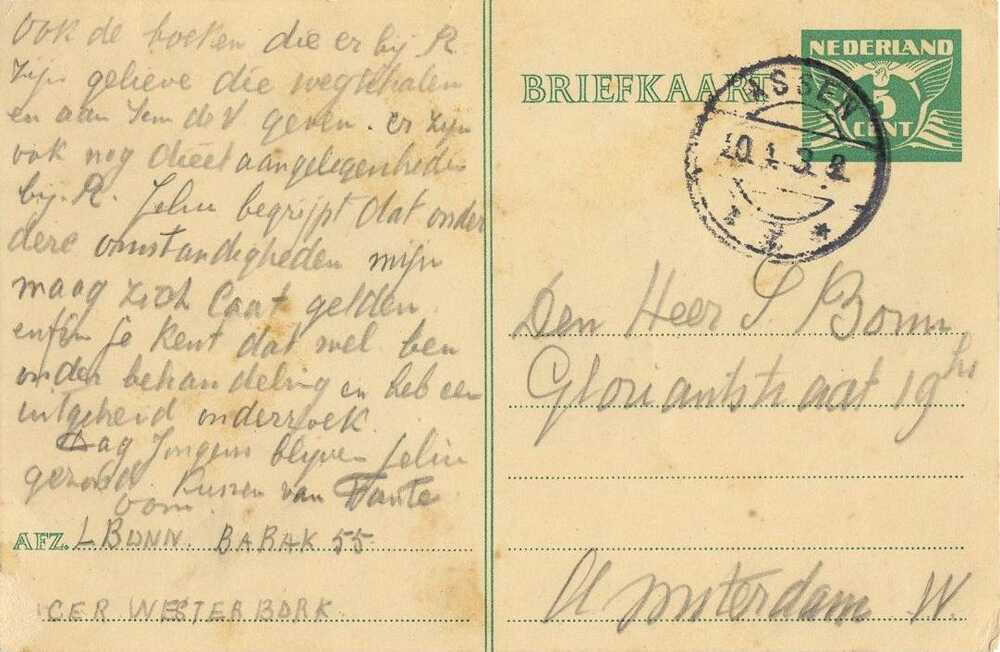 Ook de boeken die er bij R.
zijn gelieve die weg te halen
en aan Jem de V geven. er zijn
ook nog dieet aangelegenheden
bij R. Jelui begrijpt dat onder
dere omstandigheden mijn
maag zich laat gelden
enfin je kent dat wel ben
onder behandeling en heb een
uitgebreid onderzoek.
Dag Jongens blijven jelui
gezond. Kussen van Tante
oom
AFZ. L BONN. BARAK 55
GER WESTERBORK
BRIEFKAART
NEDERLAND
5
CENT
ASSEN
Den Heer S Bonn
Gloriantstraat 19 hs
Amsterdam W.